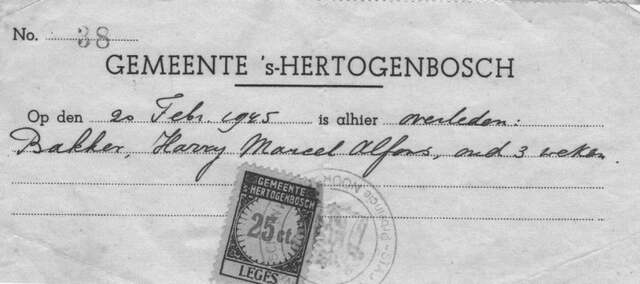 No. 38
GEMEENTE 's-HERTOGENBOSCH
Op den 20 Febr. 1945 is alhier overleden:
Bakker, Harry Marcel Alfons, oud 3 weken.
GEMEENTE
's-HERTOGENBOSCH
25 ct.
LEGES